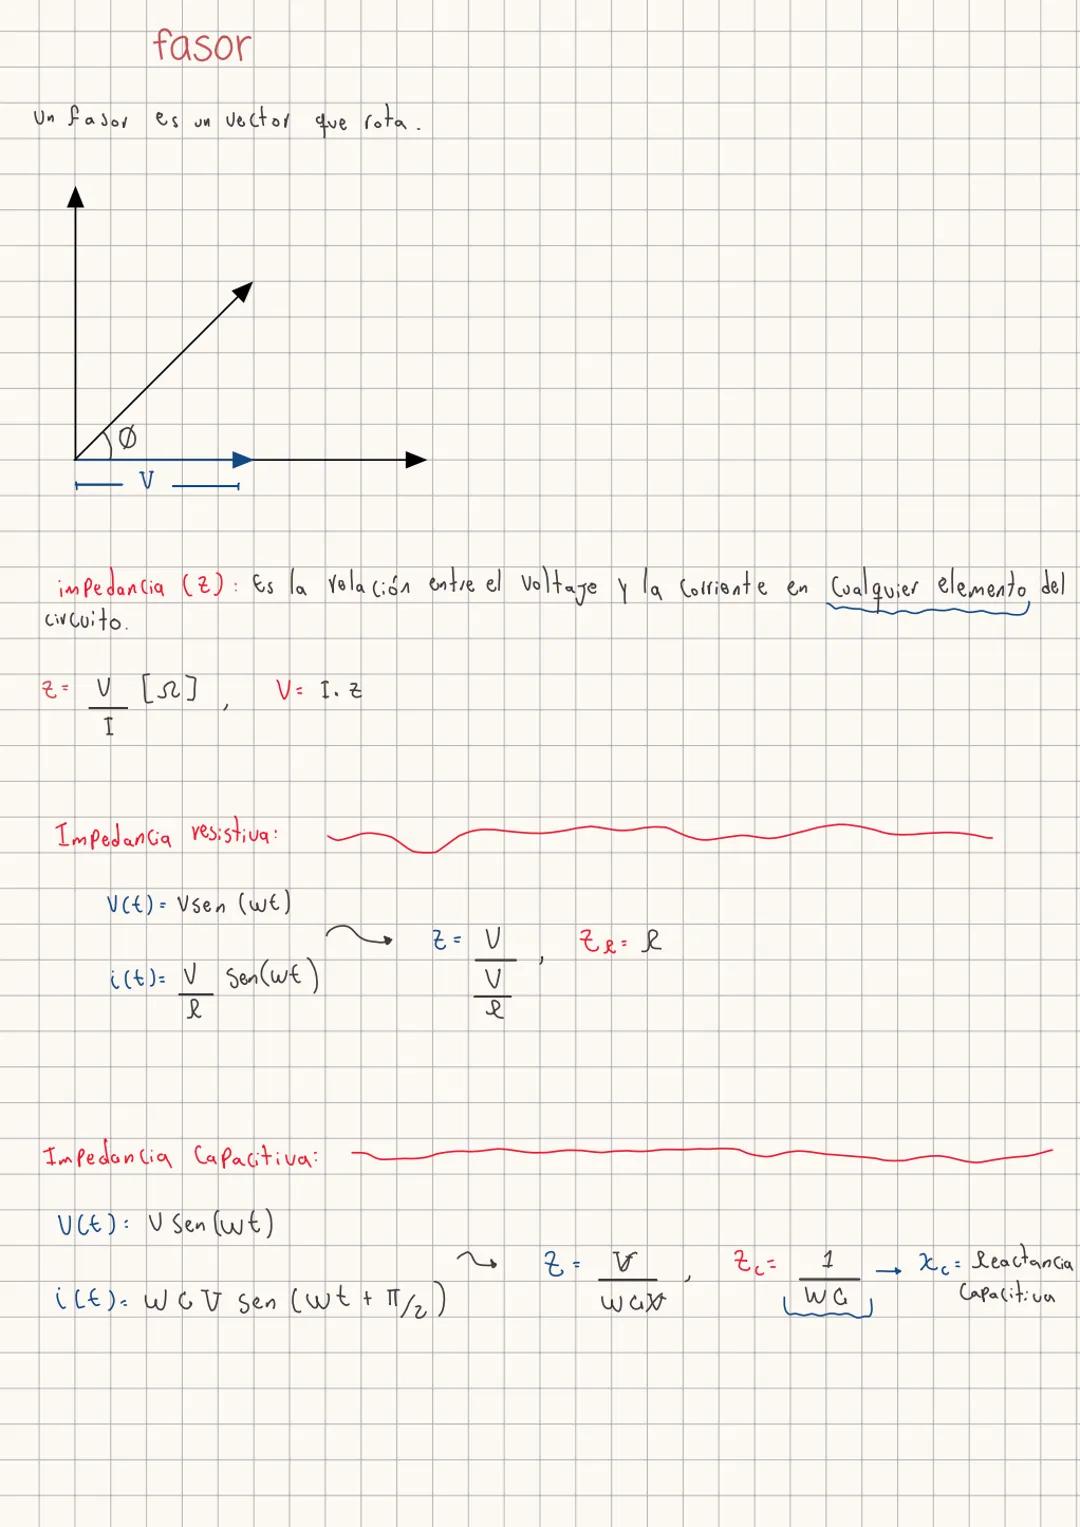 fasor
Un fasor es un vector que rota.
Ø
V
impedancia (Z): Es la relación entre el voltaje y la corriente en cualquier elemento del
circuito.
Z = V/I [Ω], V = I. Z
Impedancia resistiva:
V(t) = V sen (wt)
i(t) = V/R sen(wt)
Z = V/(V/R), Z_R = R
Impedancia Capacitiva:
V(t): V sen(wt)
i(t) = W C V sen (wt + π/2)
Z = V/(W C V), Z_C = 1/(W C) → X_C = Reactancia
Capacitiva